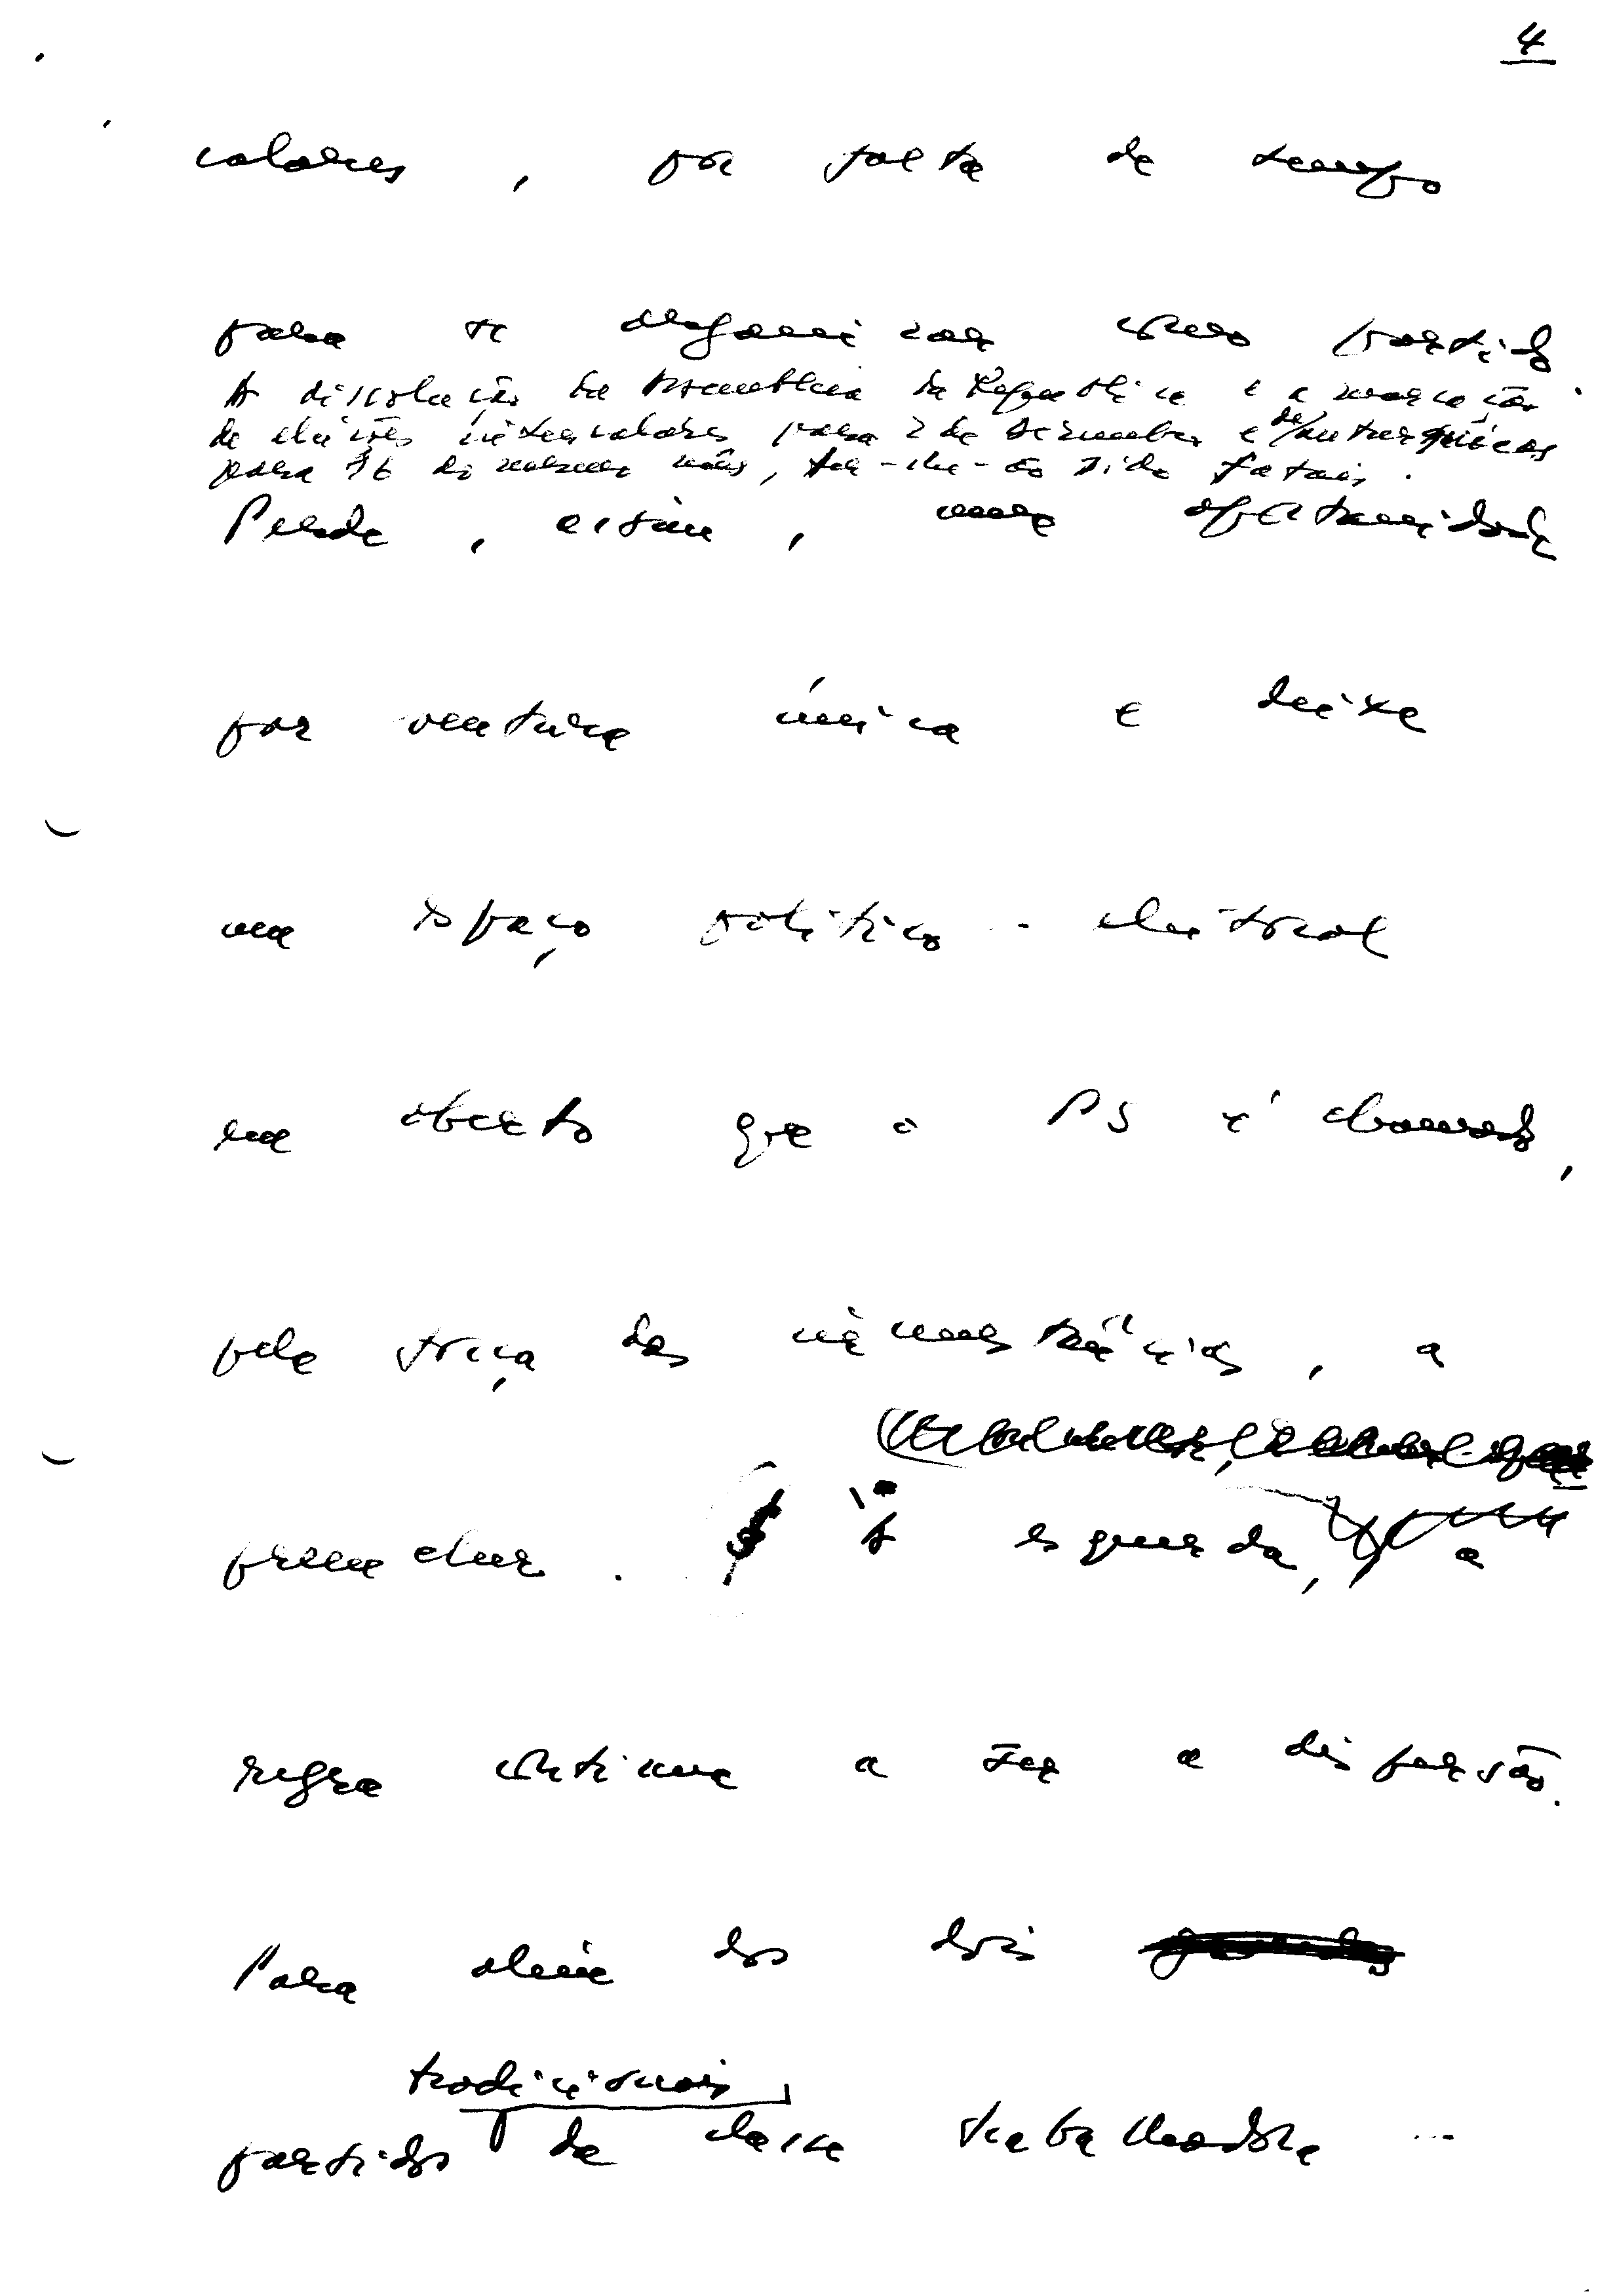 4
calares, por falta de tempo
para se organizar como partido.
A dissolução da Assembleia da República e a marcação
de eleições intercalares para 2 de Dezembro e de autárquicas
para 16 do mesmo mês, ter-lhe-ão sido fatais.
Perde, assim, uma oportunidade
por ventura única e deixa
um espaço político-eleitoral
em aberto que o PS é chamado,
pela força das circunstâncias, a
preencher. À esquerda, a
regra continua a ser a dispersão.
Para além dos dois
tradicionais
partidos da classe trabalhadora --